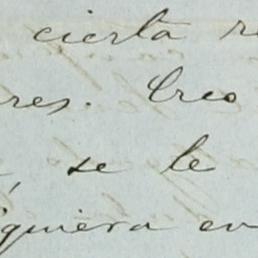 cierta re
res. Creo
, se le
iquiera en